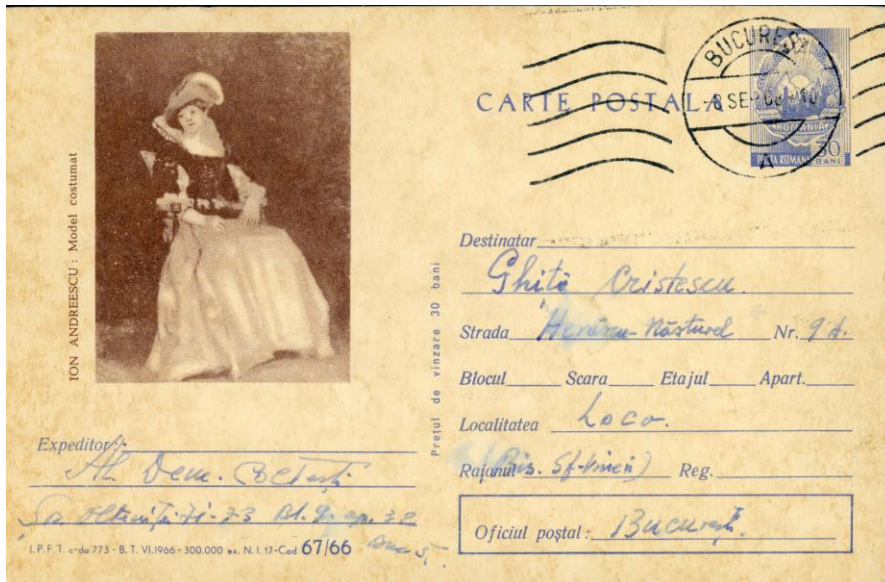 ION ANDREESCU : Model costumat
CARTE POSTALA
BUCUREȘTI
-8 SEP 10
ROMANIA
POSTA ROMANA
30
BANI
Prețul de vînzare 30 bani
Destinatar
Ghită Cristescu.
Strada Herăscu-Năsturel Nr. 9 A.
Blocul Scara Etajul Apart.
Localitatea Loco.
Raionul (Bis. Sf. Vineri) Reg.
Oficiul poștal : București.
Expeditor:
Al. Dem. Colțești
Șos. Oltenița 71-73 Bl. 9 ap. 32
Buc. 5.
I.P.F.T. c-da 773 - B. T. VI.1966 - 300.000 ex. N. I. 17-Cod 67/66